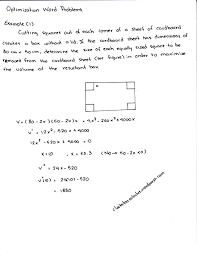 Optimization Word Problems
Example (1)
Cutting squares out of each corner of a sheet of cardboard
creates a box without a lid. If the cardboard sheet has dimensions of
80 cm × 50 cm, determine the size of each equally sized square to be
removed from the cardboard sheet (see figure) in order to maximize
the volume of the resultant box.
V = (80 - 2x)(50 - 2x)x = 4x³ - 260x² + 4000x
V' = 12x² - 520x + 4000
12x² - 520x + 4000 = 0
x = 10 , x = 33.3 (50 - 2x
V" = 24x - 520
V"(10) = 24(10) - 520